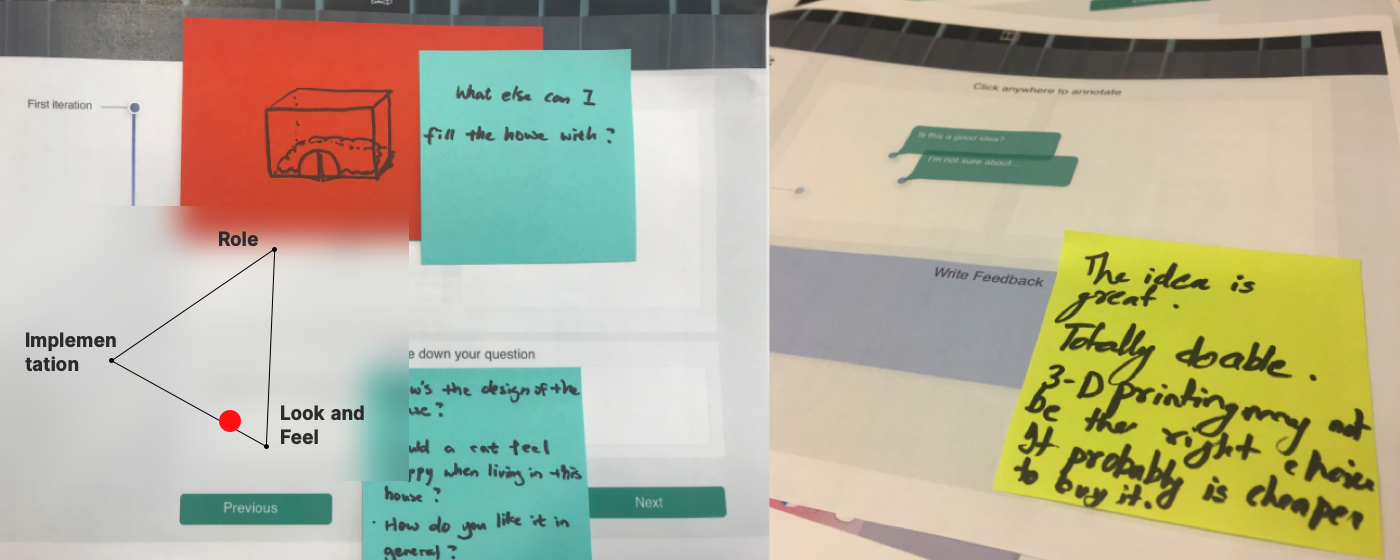 First iteration
What else can I
fill the house with?
Role
Implemen
tation
Look and
Feel
e down your question
w's the design of the
use?
uld a cat feel
ppy when living in this
house?
· How do you like it in
general?
Previous
Next
Click anywhere to annotate
Is this a good idea?
I'm not sure about...
Write Feedback
The idea is
great.
Totally doable.
3-D printing may not
be the right choice
It probably is cheaper
to buy it.